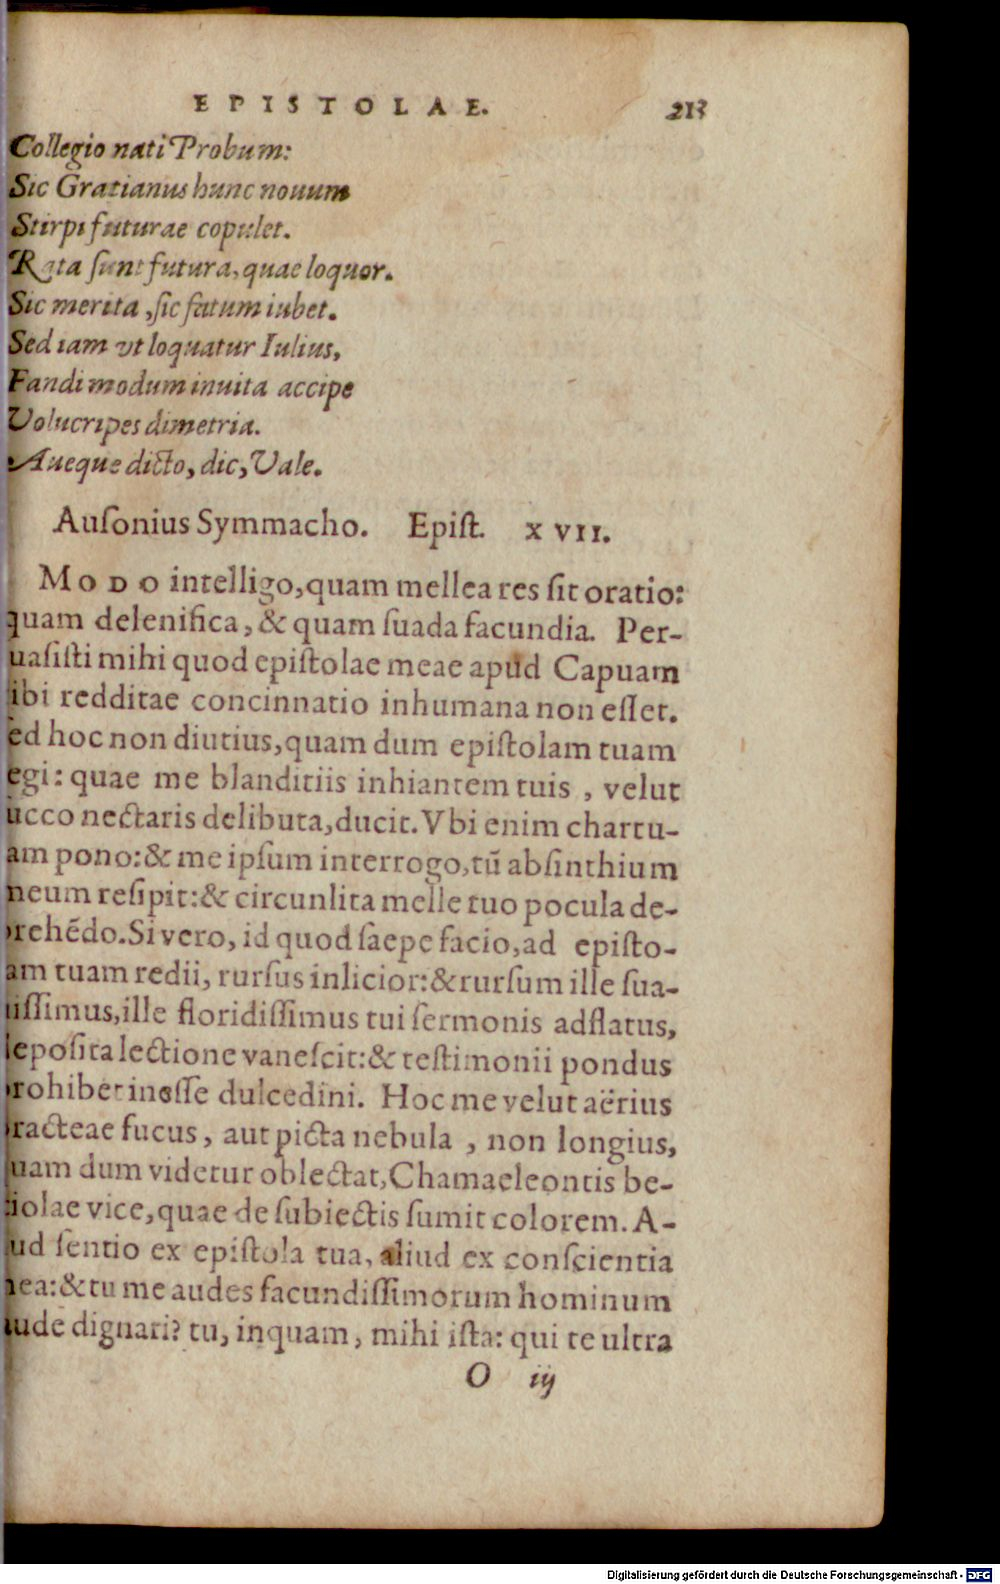 EPISTOLAE. 213
Collegio nati Probum:
Sic Gratianus hunc nouum
Stirpi futurae copulet.
Rata sunt futura, quae loquor.
Sic merita, sic fatum iubet.
Sed iam vt loquatur Iulius,
Fandi modum inuita accipe
Volucripes dimetria.
Aueque dicto, dic, Vale.
Ausonius Symmacho. Epist. XVII.
MODO intelligo, quam mellea res sit oratio:
quam delenifica, & quam suada facundia. Per-
uasisti mihi quod epistolae meae apud Capuam
ibi redditae concinnatio inhumana non esset.
ed hoc non diutius, quam dum epistolam tuam
egi: quae me blanditiis inhiantem tuis, velut
ucco nectaris delibuta, ducit. Vbi enim chartu-
am pono: & me ipsum interrogo, tū absinthium
neum resipit: & circunlita melle tuo pocula de-
rehēdo. Si vero, id quod saepe facio, ad episto-
am tuam redii, rursus inlicior: & rursum ille sua-
issimus, ille floridissimus tui sermonis adflatus,
eposita lectione vanescit: & testimonii pondus
rohibet inesse dulcedini. Hoc me velut aërius
racteae fucus, aut picta nebula, non longius,
uam dum videtur oblectat, Chamaeleontis be-
iolae vice, quae de subiectis sumit colorem. A-
ud sentio ex epistola tua, aliud ex conscientia
ea: & tu me audes facundissimorum hominum
ude dignari? tu, inquam, mihi ista: qui te ultra
O iij
Digitalisierung gefördert durch die Deutsche Forschungsgemeinschaft - DFG